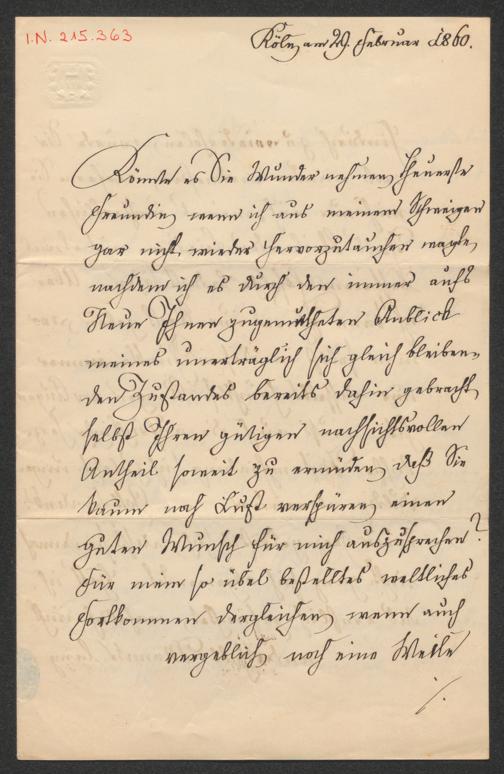 I.N. 215.363
Köln, am 29. Februar 1860.
Könnte es Sie Wunder nehmen, theuerste
Freundin, wenn ich aus meinem Schweigen
gar nicht wieder hervorzutauchen wagte,
nachdem ich es durch den immer aufs
Neue Ihnen zugemutheten Anblick
meines unerträglich sich gleich bleiben-
den Zustandes bereits dahin gebracht,
selbst Ihren gütigen nachsichtsvollen
Antheil soweit zu ermüden, daß Sie
kaum noch Lust verspüren, einen
guten Wunsch für mich auszusprechen?
Für mein so übel bestelltes weltliches
Fortkommen dergleichen, wenn auch
vergeblich, noch eine Weile
./.